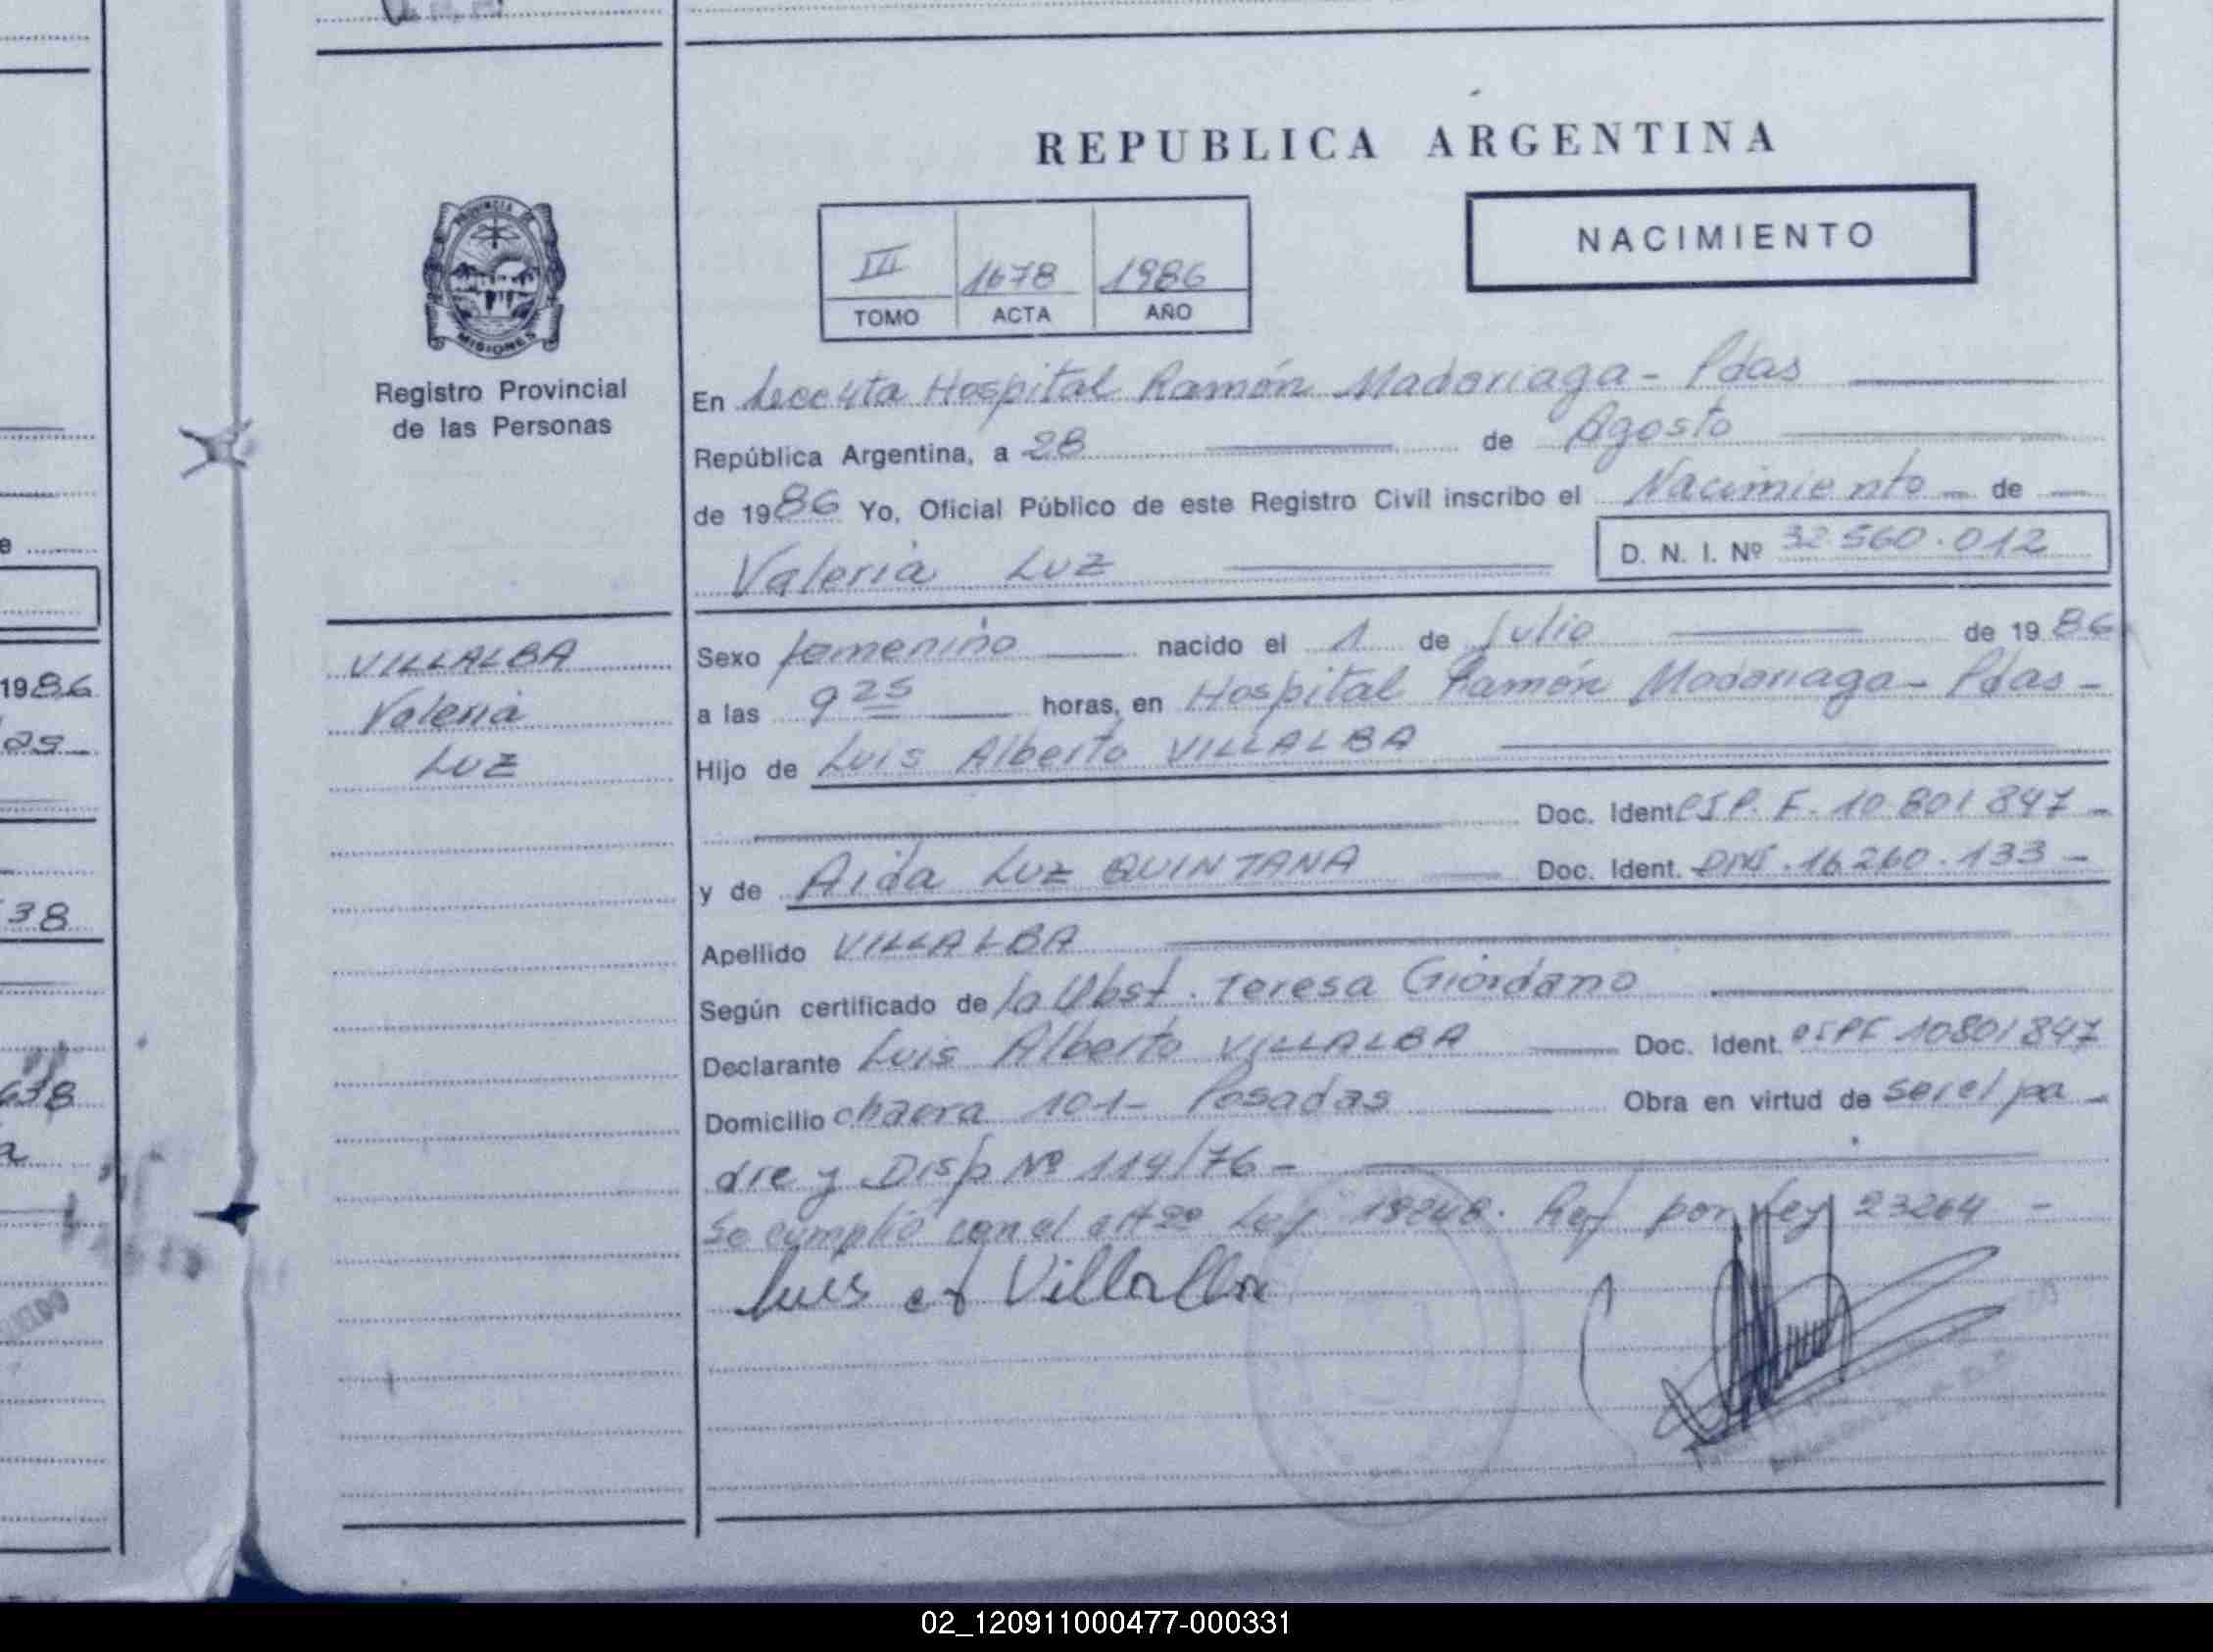 REPUBLICA ARGENTINA
NACIMIENTO
III 1678 1986
TOMO ACTA AÑO
PROVINCIA DE
MISIONES
Registro Provincial
de las Personas
En Hospital Ramón Madariaga - Pdas
República Argentina, a 28 de Agosto
de 1986 Yo, Oficial Público de este Registro Civil inscribo el Nacimiento de
Valeria Luz D. N. I. Nº 32 560.012
VILLALBA
Valeria
Luz
Sexo femenino nacido el 1 de Julio de 1986
a las 9 25 horas, en Hospital Ramón Madariaga - Pdas -
Hijo de Luis Alberto VILLALBA
Doc. Ident. 10 801 847 -
y de Aida Luz QUINTANA Doc. Ident. DNI. 16 260.133 -
Apellido VILLALBA
Según certificado de la Obst. Teresa Giordano
Declarante Luis Alberto VILLALBA Doc. Ident. 10801847
Domicilio chacra 101 - Posadas Obra en virtud de ser el pa -
dre y Disp Nº 114/76 -
Se cumplió con el art Ley 18248. Ref por Ley 23264 -
Luis A Villalba
1986
38
638
02_120911000477-000331